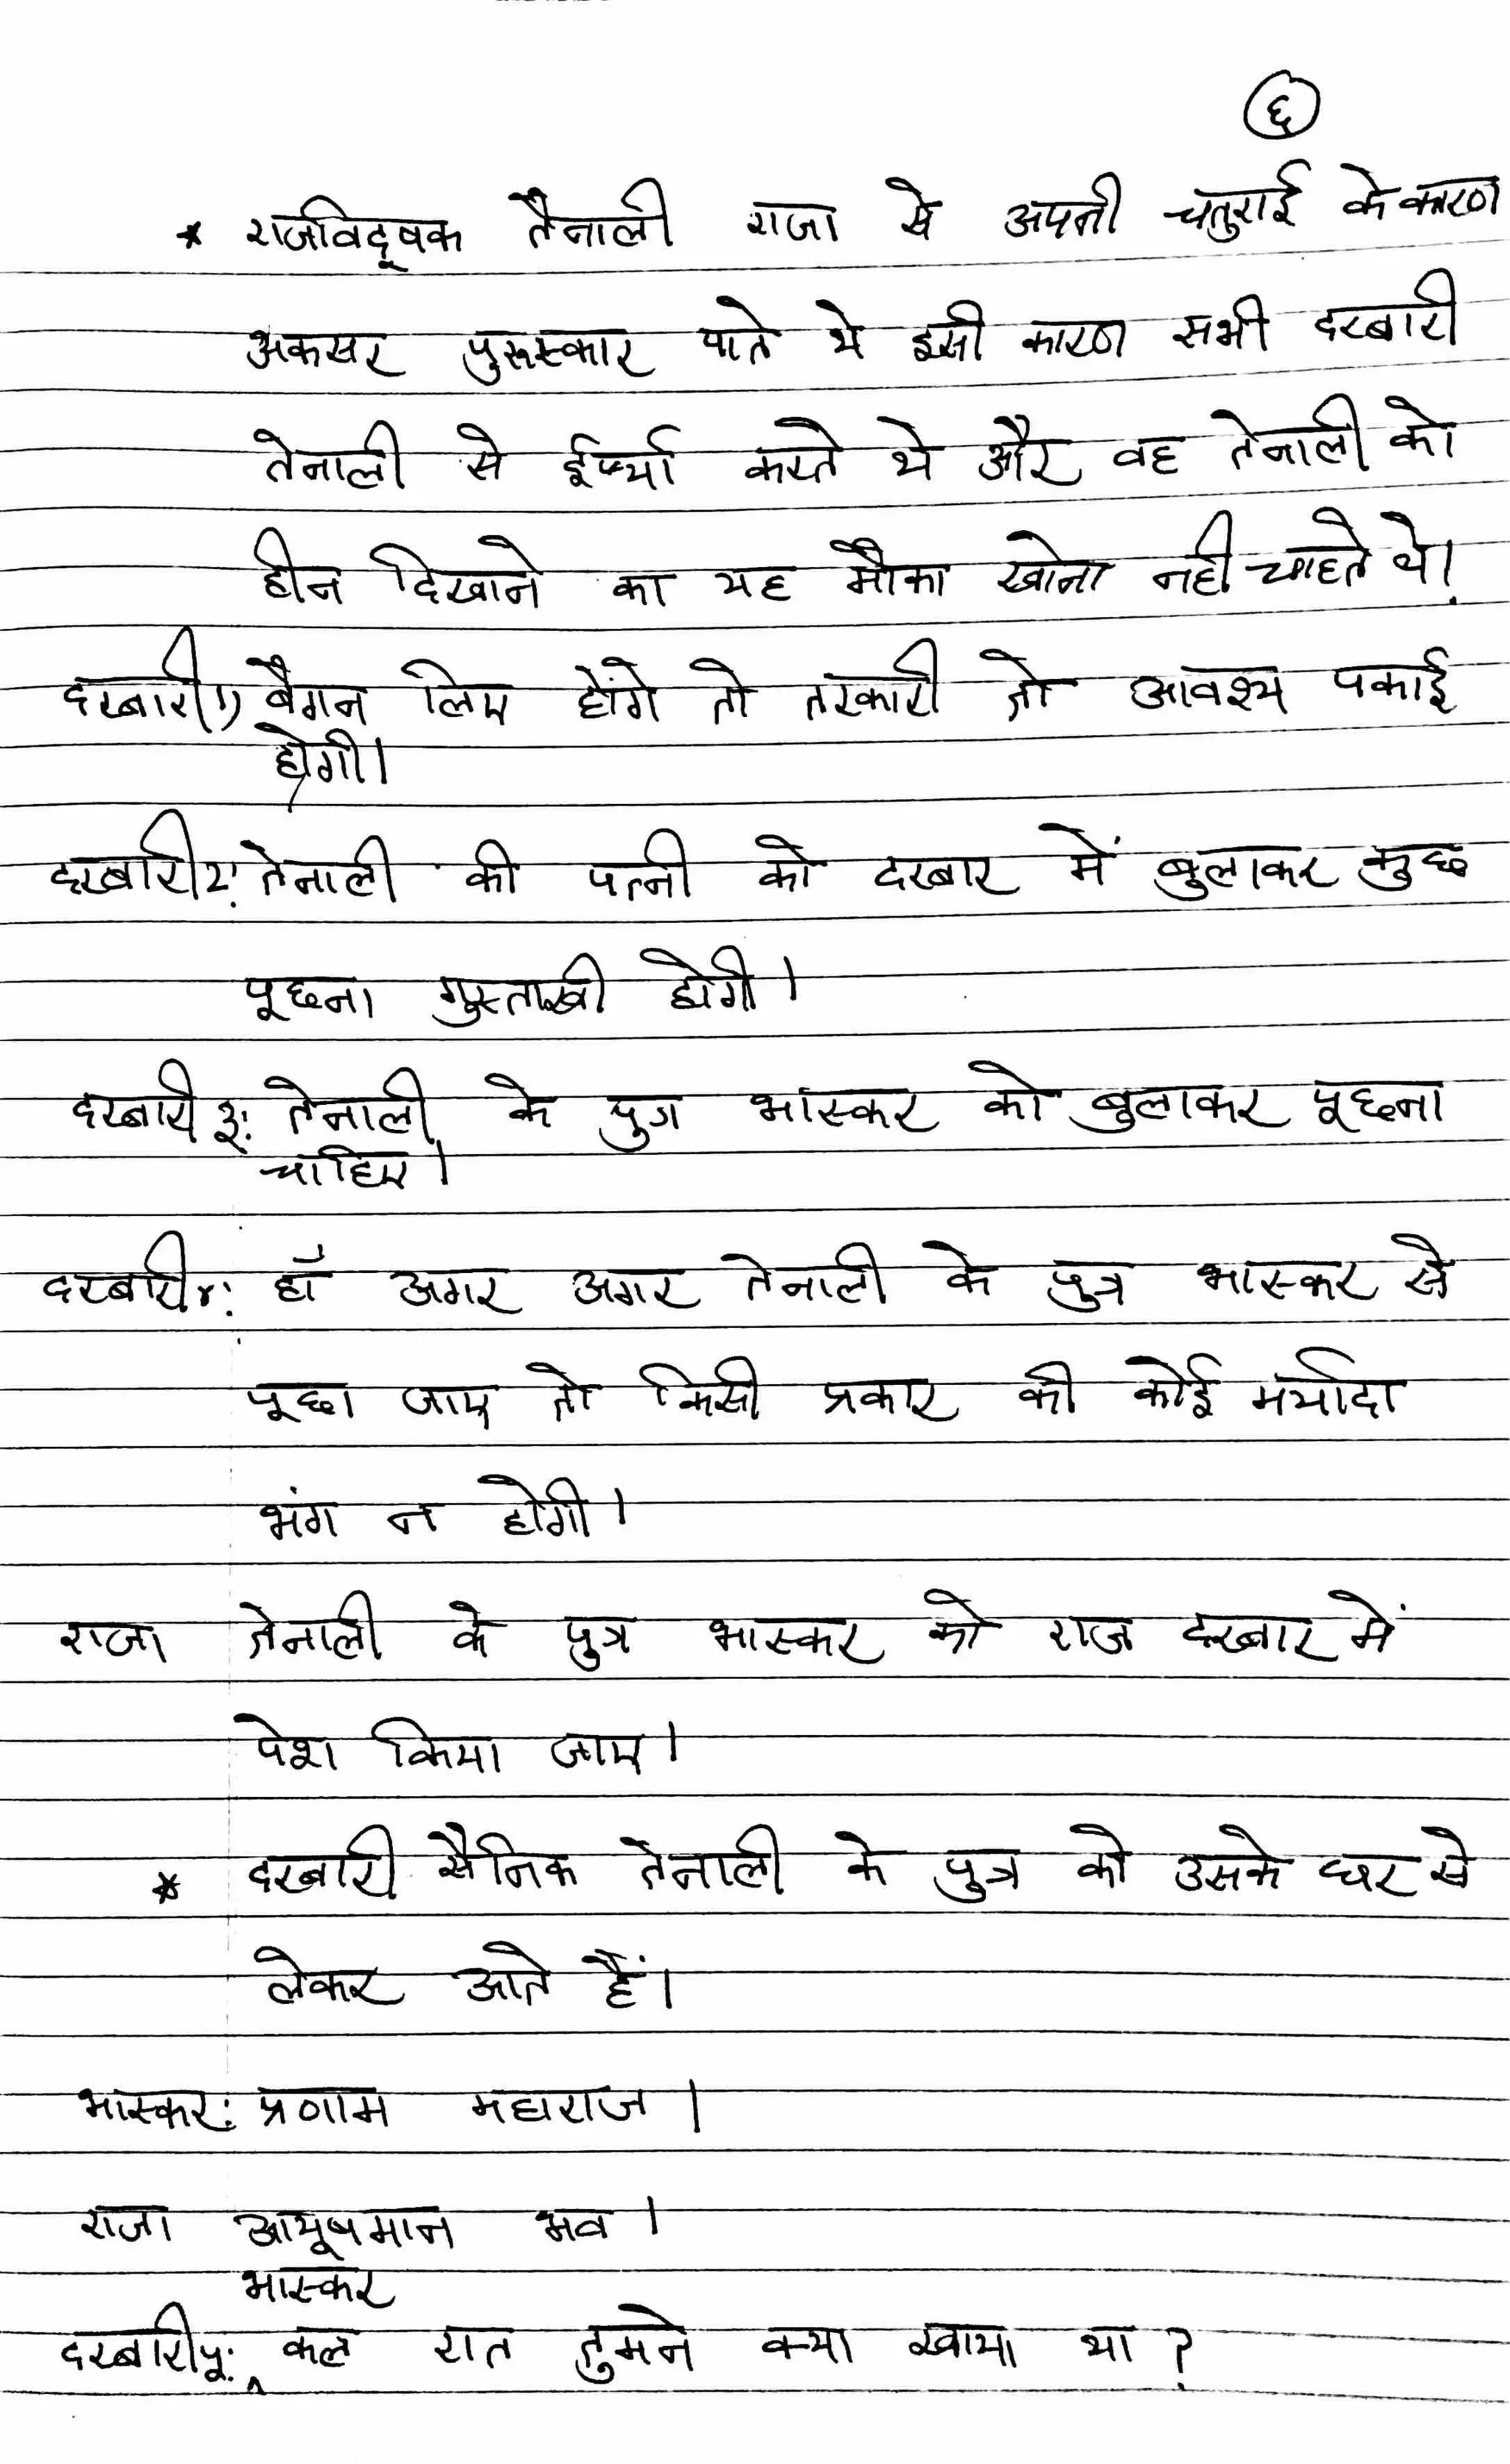 ६
* राजविदूषक तैनाली राजा से अपनी चतुराई के कारण
अकसर पुरूस्कार पाते थे इसी कारण सभी दरबारी
तेनाली से ईर्ष्या करते थे और वह तेनाली को
हीन दिखाने का यह मौका खोना नही चाहते थे।
दरबारी १) बैगन लिए होंगे तो तरकारी तो आवश्य पकाई
होगी।
दरबारी २: तेनाली की पत्नी को दरबार में बुलाकर कुछ
पूछना गुस्ताखी होगी।
दरबारी ३: तेनाली के पुत्र भास्कर को बुलाकर पूछना
चाहिए।
दरबारी ४: हाँ अगर अगर तेनाली के पुत्र भास्कर से
पूछा जाए तो किसी प्रकार की कोई मर्यादा
भंग न होगी।
राजा तेनाली के पुत्र भास्कर को राज दरबार में
पेश किया जाए।
* दरबारी सैनिक तेनाली के पुत्र को उसके घर से
लेकर आते हैं।
भास्कर: प्रणाम महाराज।
राजा आयूषमान भव।
भास्कर
दरबारी ५: ^ कल रात तुमने क्या खाया था?